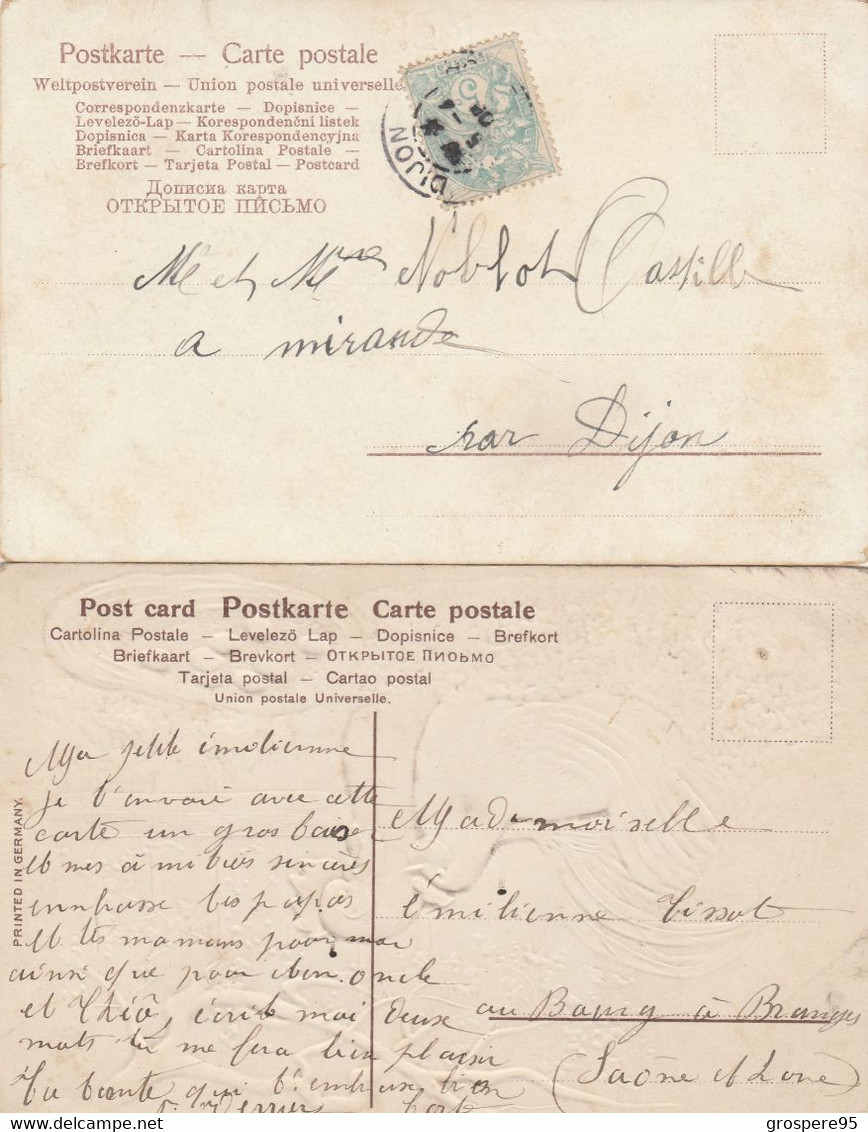 Postkarte — Carte postale
Weltpostverein — Union postale universelle
Correspondenzkarte — Dopisnice —
Levelező-Lap — Korespondenční listek
Dopisnica — Karta Korespondencyjna
Briefkaart — Cartolina Postale —
Brefkort — Tarjeta Postal — Postcard
Дописиа карта
ОТКРЫТОЕ ПИСЬМО
DIJON
Mr et Mme Noblot Castille
a mirande
par Dijon
Post card Postkarte Carte postale
Cartolina Postale — Levelező Lap — Dopisnice — Brefkort
Briefkaart — Brevkort — ОТКРЫТОЕ ПИОЬМО
Tarjeta postal — Cartao postal
Union postale Universelle.
PRINTED IN GERMANY.
Ma petite émilienne
je t'envoie avec cette
carte un gros baiser
et mes amitiés sincères
embrasse tes papas
et tes mamans pour moi
ainsi que pour mon oncle
et Théo, écrit moi deux
mots tu me fera bien plaisir
Ta tante qui t'embrasse bien
fort
Mademoiselle
émilienne Tissot
au Bourg à Branges
(Saône et Loire)
grospere95